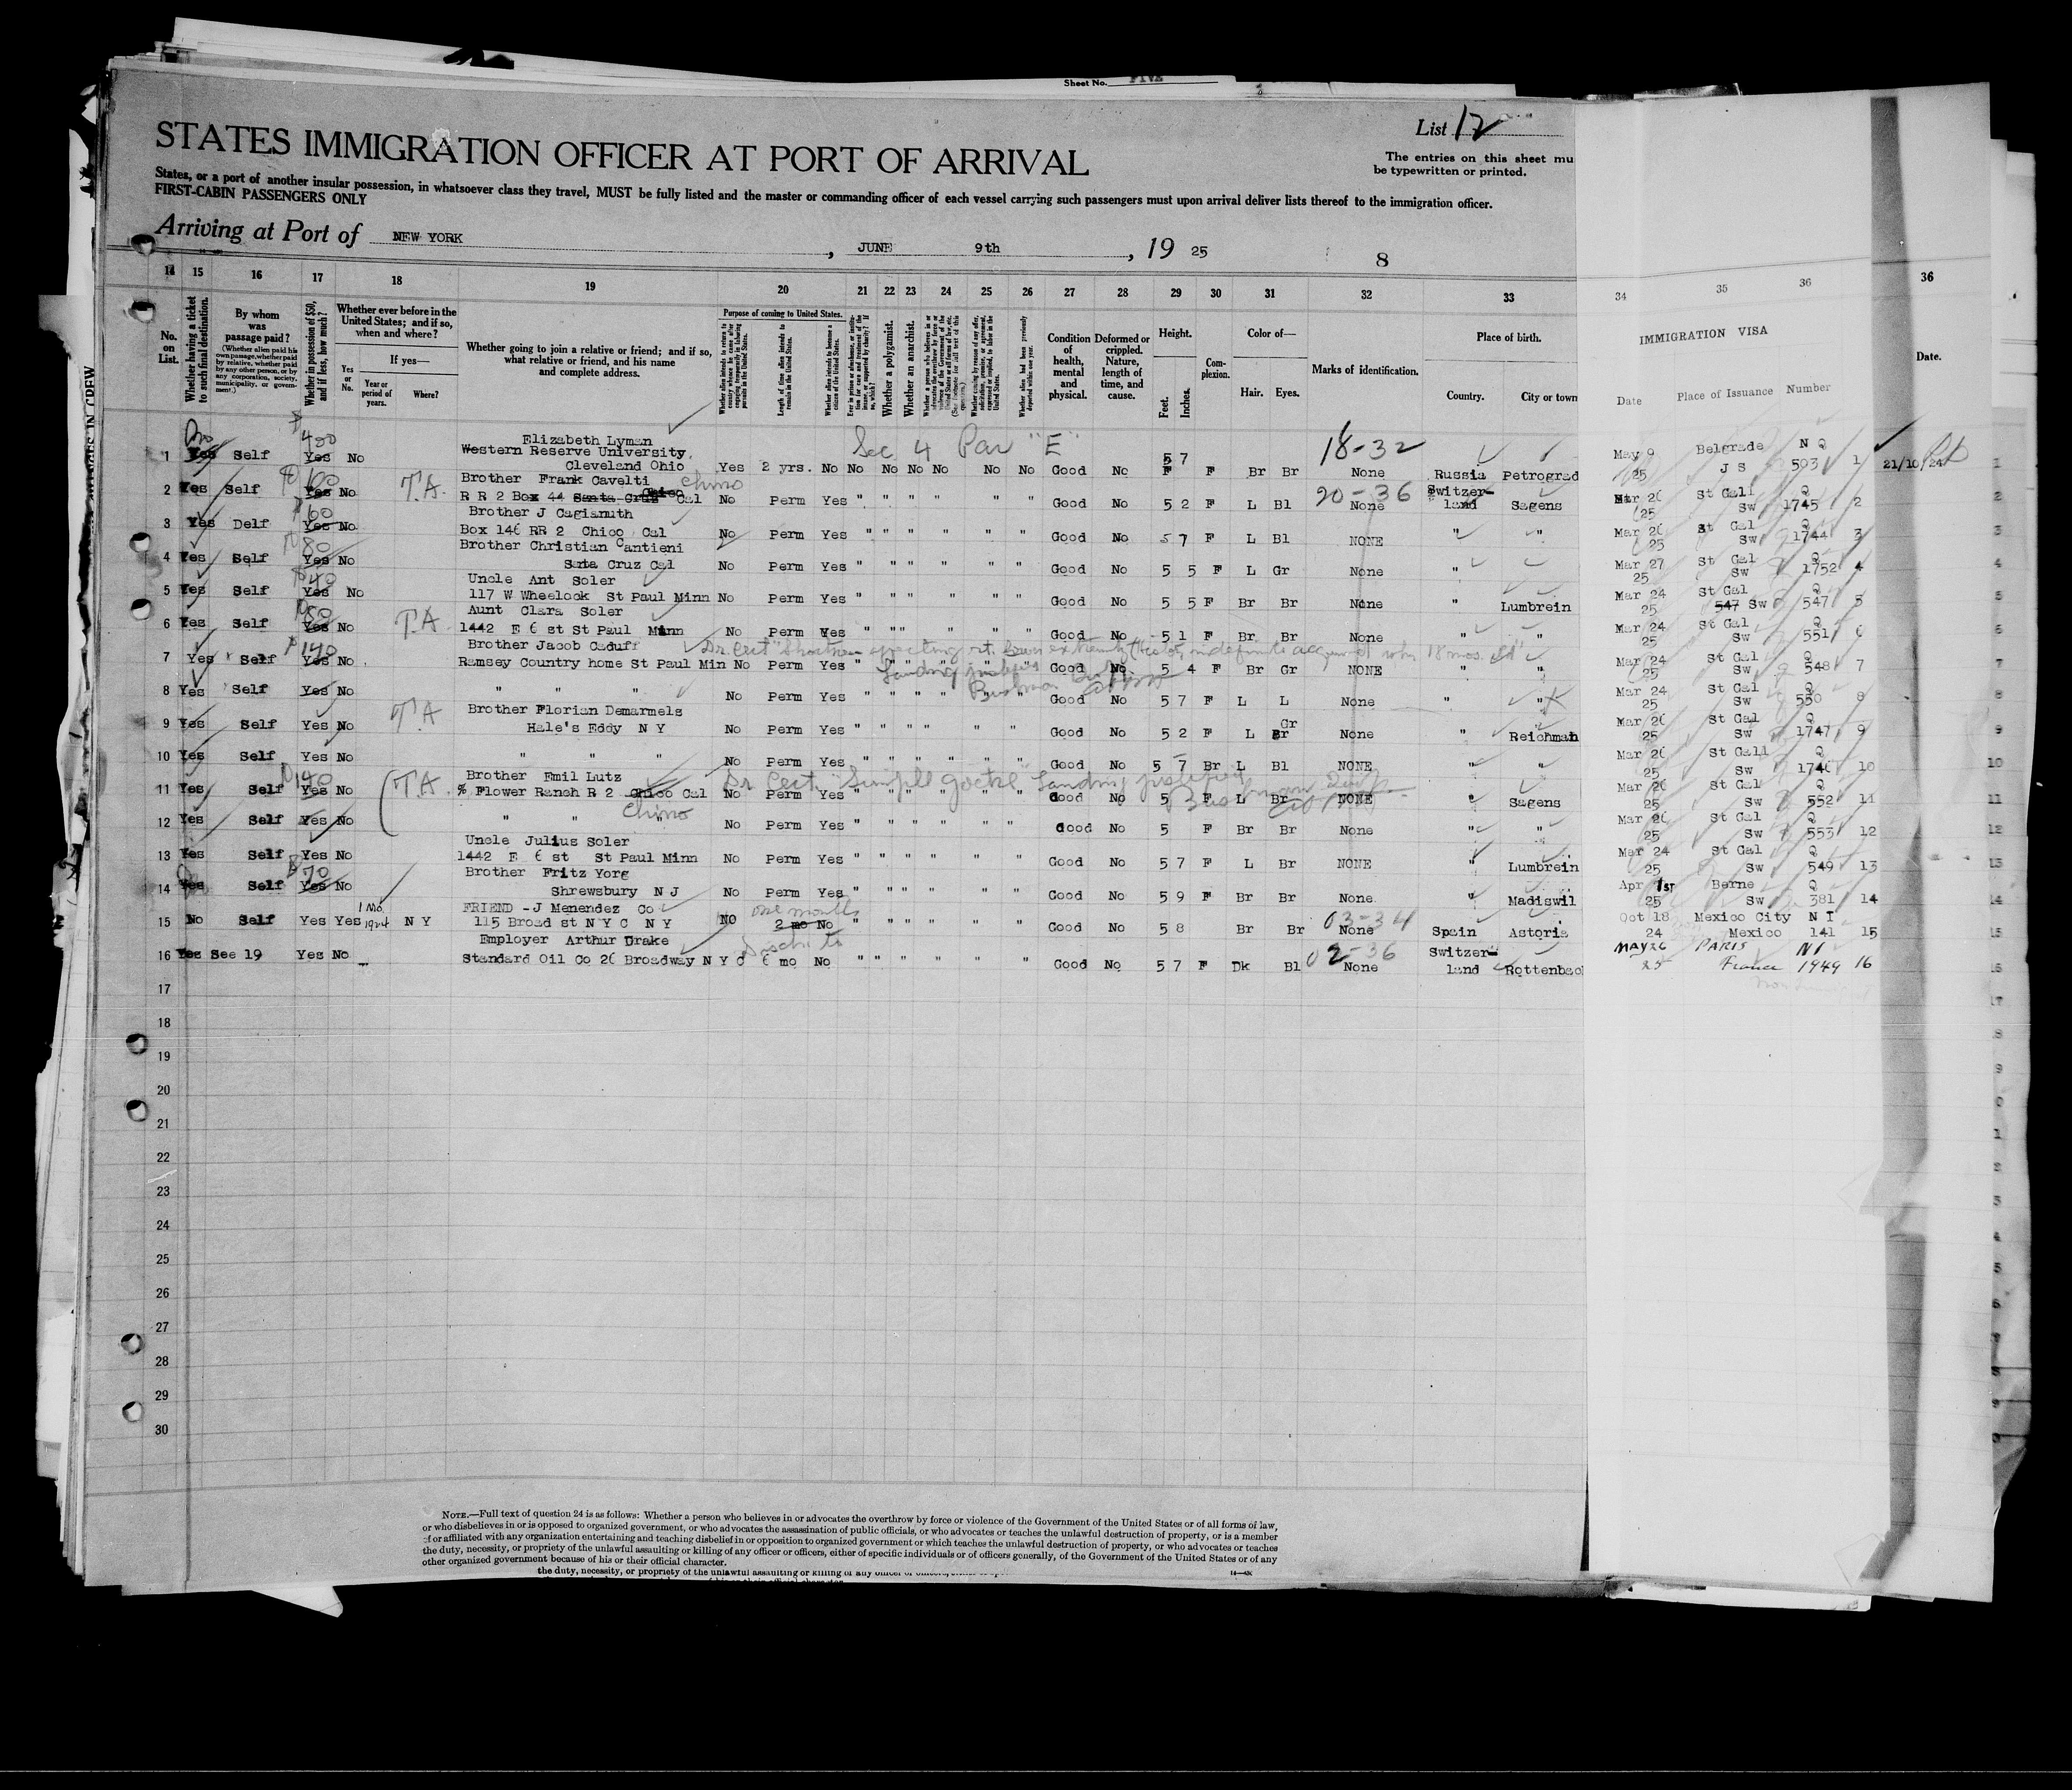 Sheet No. FIVE
List 12
STATES IMMIGRATION OFFICER AT PORT OF ARRIVAL
The entries on this sheet mu
be typewritten or printed.
States, or a port of another insular possession, in whatsoever class they travel, MUST be fully listed and the master or commanding officer of each vessel carrying such passengers must upon arrival deliver lists thereof to the immigration officer.
FIRST-CABIN PASSENGERS ONLY
Arriving at Port of NEW YORK, JUNE 9th, 19 25
8
14 15 16 17 18 19 20 21 22 23 24 25 26 27 28 29 30 31 32 33 34 35 36 36
No. on List.
Whether having a ticket to such final destination.
By whom was passage paid?
(Whether alien paid his own passage, whether paid by relative, whether paid by any other person, or by any corporation, society, municipality, or government.)
Whether in possession of $50, and if less, how much?
Whether ever before in the United States; and if so, when and where?
Yes or No.
If yes—
Year or period of years.
Where?
Whether going to join a relative or friend; and if so, what relative or friend, and his name and complete address.
Purpose of coming to United States.
Length of time alien intends to remain in the United States.
Whether alien intends to become a citizen of the United States.
Whether a polygamist.
Whether an anarchist.
Condition of health, mental and physical.
Deformed or crippled. Nature, length of time, and cause.
Height.
Feet. Inches.
Complexion.
Color of—
Hair. Eyes.
Marks of identification.
Place of birth.
Country. City or town
IMMIGRATION VISA
Date Place of Issuance Number
Date.
Sec 4 Par "E"
18-32
Elizabeth Lyman
1 Yes Self 400 Yes No Western Reserve University, Cleveland Ohio Yes 2 yrs. No No No No No No No Good No 5 7 F F Br Br None Russia Petrograd May 9 25 Belgrade J S N Q 503 1 21/10/24
2 Yes Self 100 Yes No T.A. Brother Frank Cavelti Chino
R R 2 Box 44 Santa Cruz Chico Cal No Perm Yes " " " " " " Good No 5 2 F L Bl 20-36 None Switzerland Sagens Mar 26 25 St Gall Sw Q 1745 2
3 Yes Delf 60 Yes No Brother J Cagianuth
Box 146 RR 2 Chico Cal No Perm Yes " " " " " " Good No 5 7 F L Bl NONE " " Mar 26 25 St Gal Sw Q 1744 3
4 Yes Self 80 Yes No Brother Christian Cantieni
Sata Cruz Cal No Perm Yes " " " " " " Good No 5 5 F L Gr None " Mar 27 25 St Gal Sw Q 1752 4
5 Yes Self 40 Yes No Uncle Ant Soler
117 W Wheelock St Paul Minn No Perm Yes " " " " " " Good No 5 5 F Br Br None " Lumbrein Mar 24 25 St Gal 547 Sw 547 5
6 Yes Self 80 Yes No T.A. Aunt Clara Soler
1442 E 6 st St Paul Minn No Perm Yes " " " " " " Good No 5 1 F Br Br None " " Mar 24 25 St Gal Sw Q 551 6
7 Yes Self 140 Yes No Brother Jacob Caduff
Ramsey Country home St Paul Min No Perm Yes " " " " " " Good No 5 4 F Br Gr NONE " " Mar 24 25 St Gal Sw Q 548 7
8 Yes Self Yes No " " " No Perm Yes " " " " " " Good No 5 7 F L L None " " Mar 24 25 St Gal Sw Q 550 8
9 Yes Self Yes No T.A Brother Florian Demarmels
Hale's Eddy N Y No Perm Yes " " " " " " Good No 5 2 F L Gr None " Reichmah Mar 26 25 St Gal Sw Q 1747 9
10 Yes Self Yes No " " " No Perm Yes " " " " " " Good No 5 7 Br L Bl NONE " " Mar 26 25 St Gall Sw Q 1746 10
Dr Cert "Simple goitre" Landing justified
11 Yes Self 140 Yes No T.A. Brother Emil Lutz
% Flower Ranch R 2 Chico Cal No Perm Yes " " " " " " Good No 5 F L Br NONE " Sagens Mar 26 25 St Gal Sw Q 552 11
Chino
12 Yes Self Yes No " " " No Perm Yes " " " " " " Good No 5 F Br Br None " " Mar 26 25 St Gal Sw Q 553 12
13 Yes Self Yes No Uncle Julius Soler
1442 E 6 st St Paul Minn No Perm Yes " " " " " " Good No 5 7 F L Br NONE " Lumbrein Mar 24 25 St Gal Sw Q 549 13
14 Yes Self 70 Yes No Brother Fritz Yorg
Shrewsbury N J No Perm Yes " " " " " " Good No 5 9 F Br Br None " Madiswil Apr 1st 25 Berne Sw Q 381 14
15 No Self Yes Yes 1 Mo 1924 N Y FRIEND - J Menendez Co
115 Broad st N Y C N Y NO one month 2 mo No " " " " " " Good No 5 8 Br Br 03-34 None Spain Astoria Oct 18 24 Mexico City Mexico N I 141 15
16 Yes See 19 Yes No Employer Arthur Drake
Standard Oil Co 26 Broadway N Y C 6 mo No " " " " " " Good No 5 7 F Dk Bl 02-36 None Switzerland Rottenbac MAY 26 25 PARIS France NI 1949 16
17
18
19
20
21
22
23
24
25
26
27
28
29
30
NOTE.—Full text of question 24 is as follows: Whether a person who believes in or advocates the overthrow by force or violence of the Government of the United States or of all forms of law,
or who disbelieves in or is opposed to organized government, or who advocates the assassination of public officials, or who advocates or teaches the unlawful destruction of property, or is a member
of or affiliated with any organization entertaining and teaching disbelief in or opposition to organized government or which teaches the unlawful destruction of property, or who advocates or teaches
the duty, necessity, or propriety of the unlawful assaulting or killing of any officer or officers, either of specific individuals or of officers generally, of the Government of the United States or of any
other organized government because of his or their official character.
the duty, necessity, or propriety of the unlawful assaulting or killing of any officer or officers,